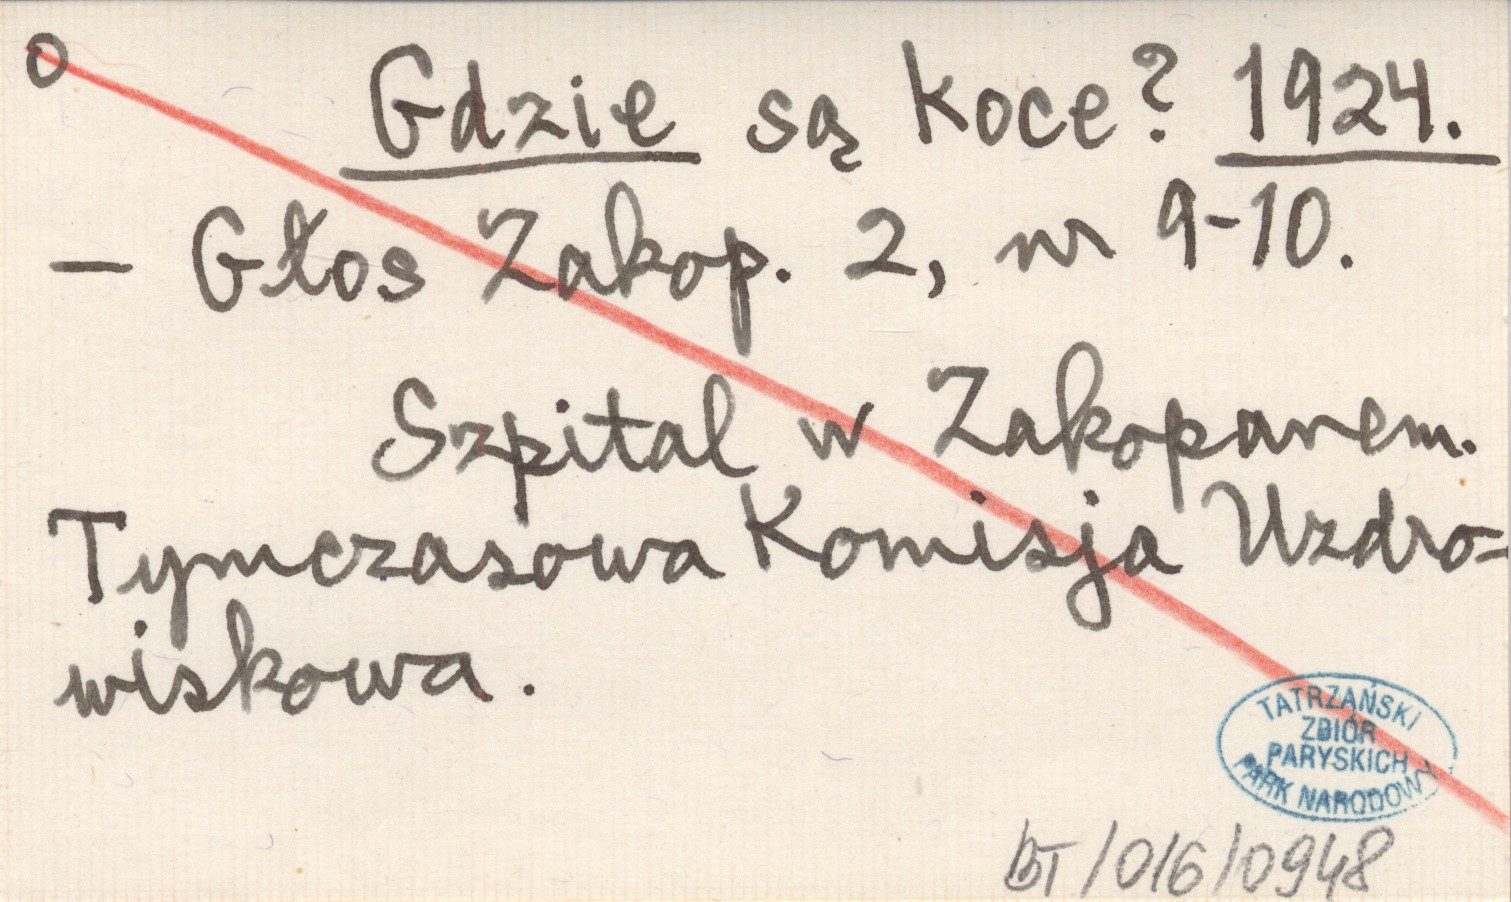 o Gdzie są koce? 1924.
– Głos Zakop. 2, nr 9-10.
Szpital w Zakopanem.
Tymczasowa Komisja Uzdro=
wiskowa.
TATRZAŃSKI
ZBIÓR
PARYSKICH
PARK NARODOWY
BT/016/0948